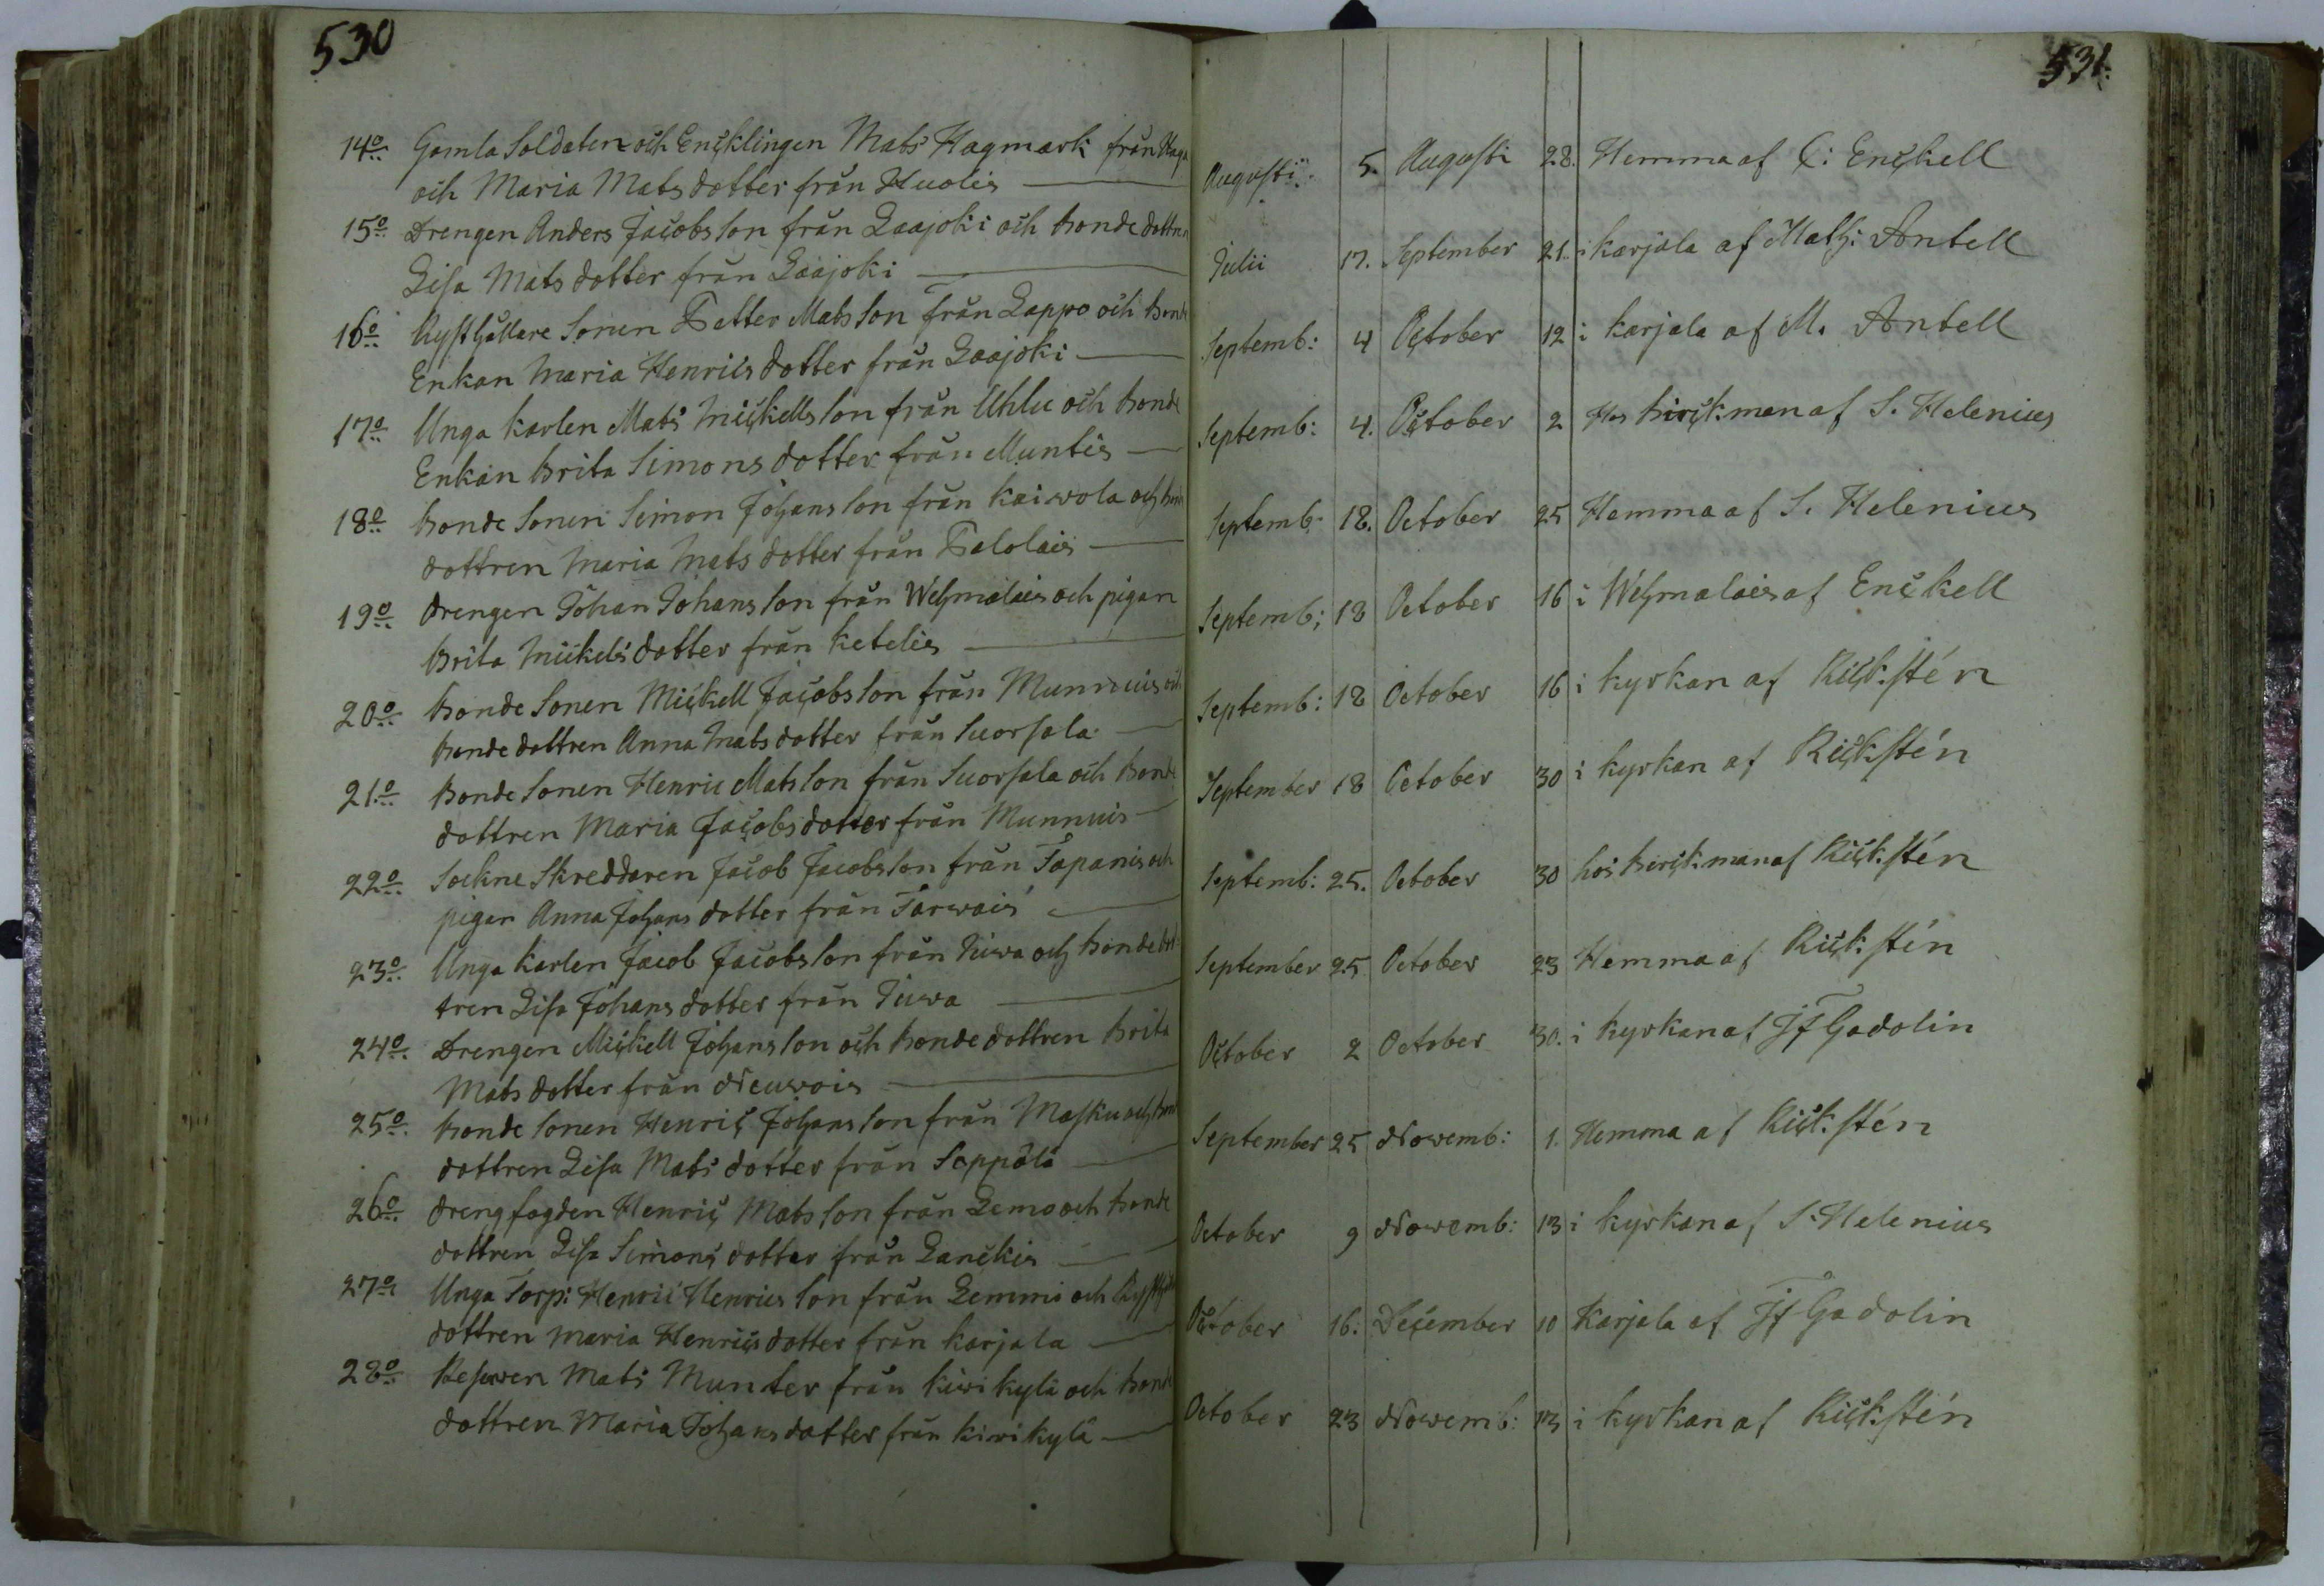 530
14o Gamla Soldaten och Encklingen Mats Hagmark från Haga
och Maria Matsdotter från Huolis
15o Drengen Anders Jacobsson från Laajoki och Bonde dottren
Lisa Matsdotter från Laajoki
16o Rysthållare Sonen Petter Matsson från Lappo och Bonde
Enkan Maria Henricsdotter från Laajoki
17o Unga karlen Mats Mickellsson från Uhlu och Bonde
Enkan Brita Simonsdotter från Muntis
18o Bonde Sonen Simon Johansson från Kaiwola och
dottren Maria Matsdotter från Palolais
19o Drengen Johan Johansson från Wehmalais och pigan
Brita Mickelsdotter från Ketelis
20o Bonde Sonen Mickell Jacobsson från Munnuis och
Bonde dottren Anna Matsdotter från Suorsala
21o Bonde Sonen Henric Matsson från Suorsala och Bonde
dottren Maria Jacobsdotter från Munnuis
22o Sockne Skreddaren Jacob Jacobsson från Tapanis och
pigan Anna Johansdotter från Tarwais
23o Unga Karlen Jacob Jacobsson från Juwa och Bonde dot-
tren Lisa Johansdotter från Juwa
24o Drengen Mickell Johansson och Bonde dottren Brita
Matsdotter från Neuwois
25o Bonde Sonen Henric Johansson från Masku och
dottren Lisa Matsdotter från Seppälä
26o Drengfogden Henric Matsson från Lemo och Bonde
dottren Lisa Simonsdotter från Lanckis
27o Unga Torp: Henric Henricsson från Lemmi och
dottren Maria Henricsdotter från Karjala
28o Reserven Mats Munter från Kiwikylä och Bonde
dottren Maria Johansdotter från Kiwikylä
531.
Augusti 5. Augusti 28. Hemma af C: Enckell
Julii 17. September 21. i Karjala af Math: Antell
Septemb: 4 October 12 i Karjala af M. Antell
Septemb: 4. October 2 Hos Birckman af S. Helenius
Septemb: 18. October 25 Hemma af S. Helenius
Septemb: 18 October 16 i Wehmalais af Enckell
Septemb: 18 October 16 i kyrkan af Rickstén
September 18 October 30 i kyrkan af Rickstén
Septemb: 25. October 30 hos Birckman af Rickstén
September 25 October 23 Hemma af Rickstén
October 2 October 30. i kyrkan af Jf Gadolin
September 25 Novemb: 1. Hemma af Rickstén
October 9 Novemb: 13 i kyrkan af S. Helenius
October 16. December 10 Karjala af Jf Gadolin
October 23 Novemb: 13 i kyrkan af Rickstén